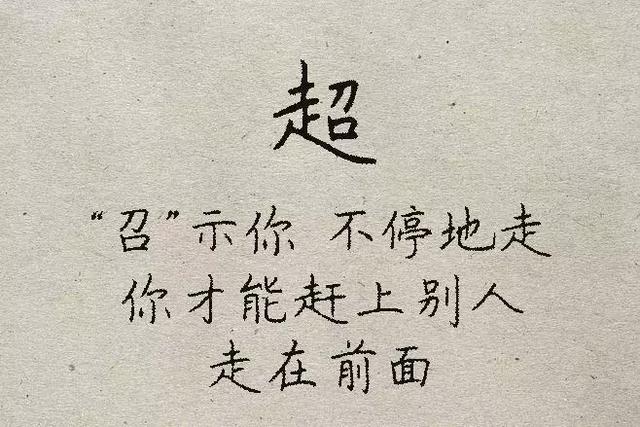 超
“召”示你 不停地走
你才能赶上别人
走在前面